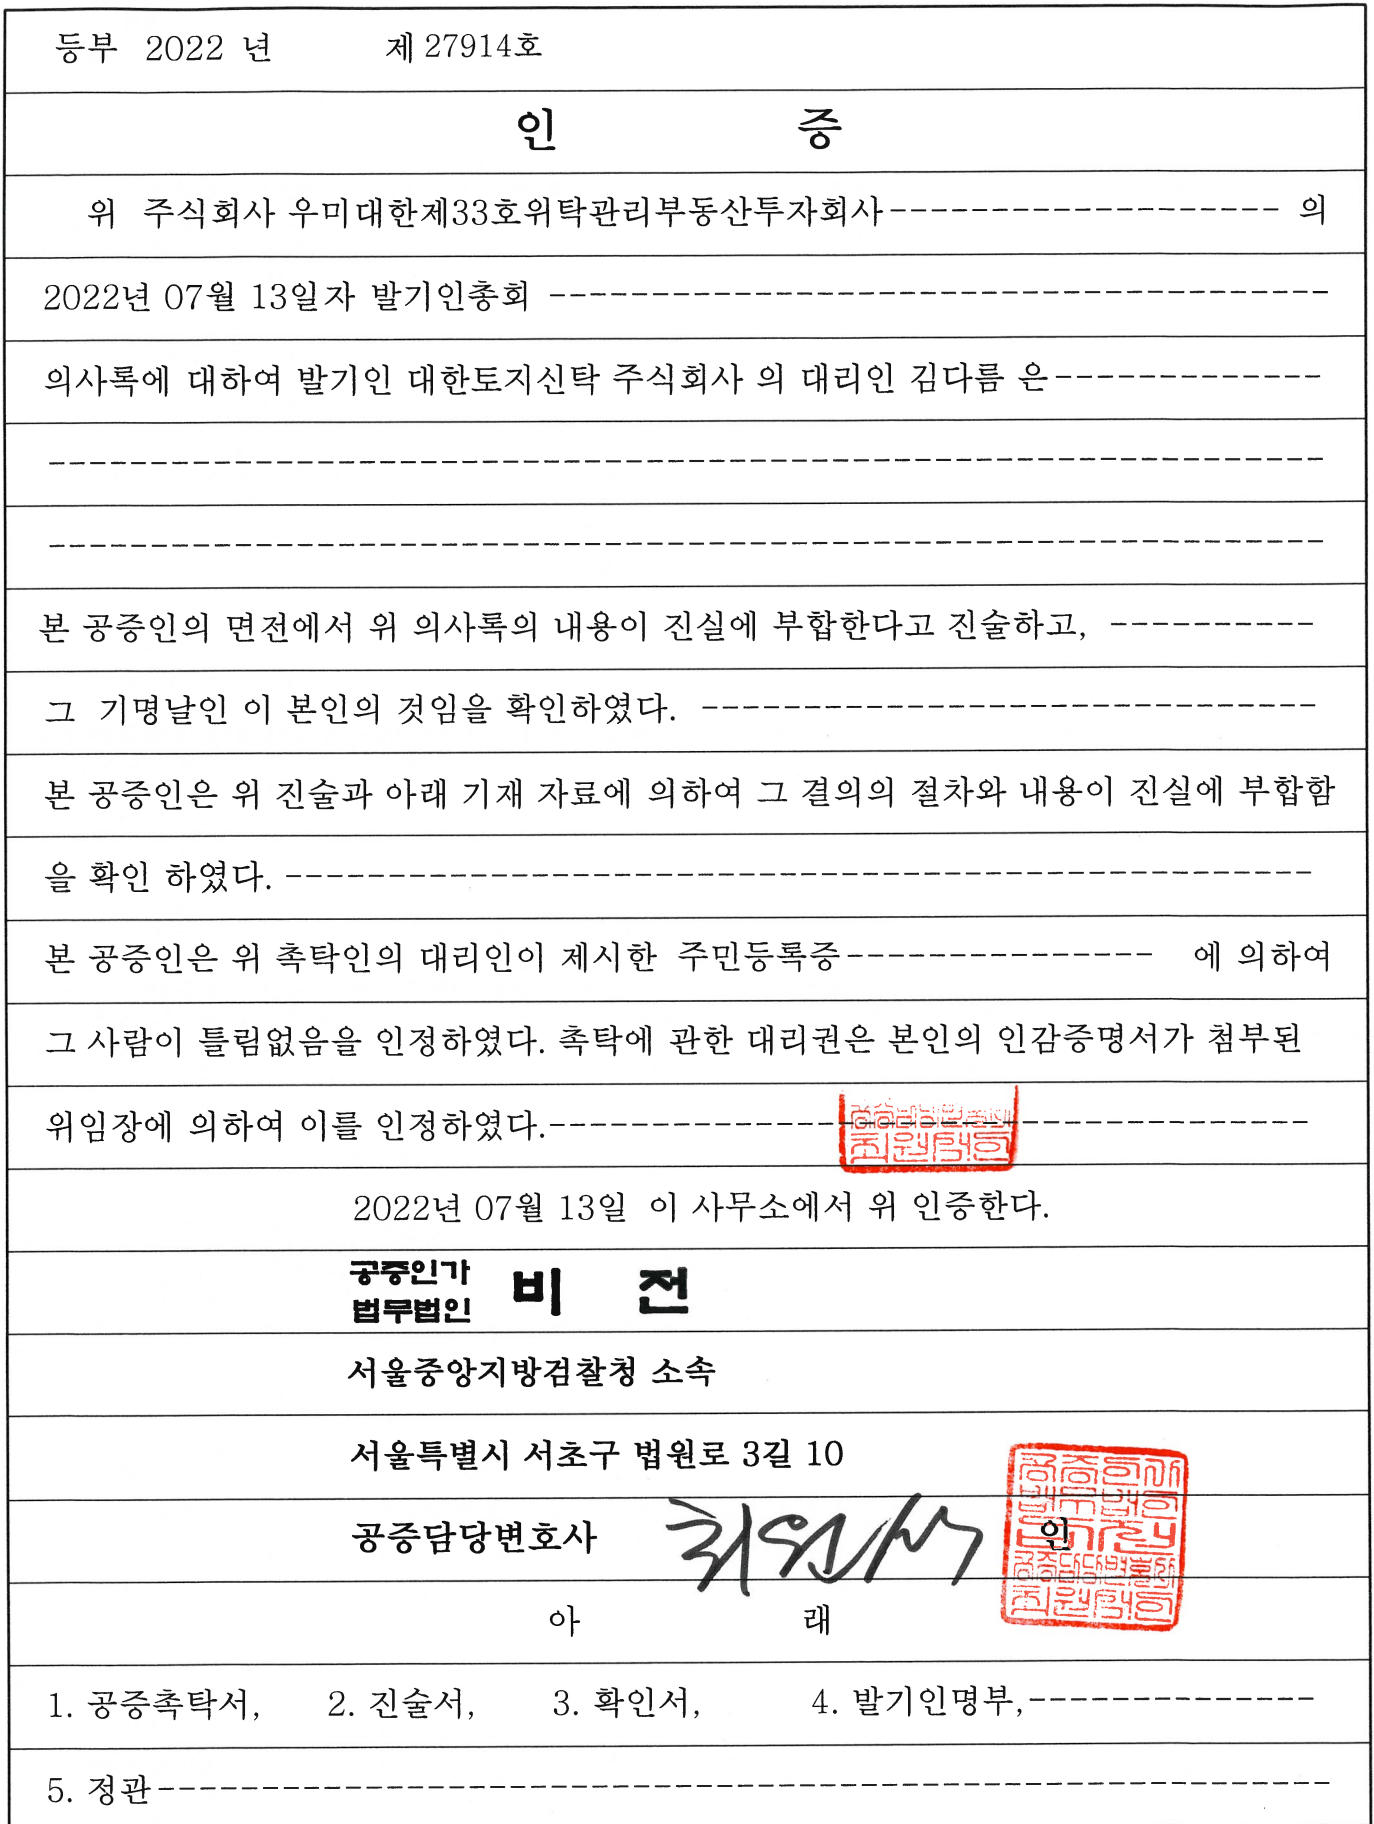 등부 2022 년 제 27914호
인 증
위 주식회사 우미대한제33호위탁관리부동산투자회사------------------- 의
2022년 07월 13일자 발기인총회 --------------------------------------
의사록에 대하여 발기인 대한토지신탁 주식회사 의 대리인 김다름 은-------------
--------------------------------------------------------------
--------------------------------------------------------------
본 공증인의 면전에서 위 의사록의 내용이 진실에 부합한다고 진술하고, ----------
그 기명날인 이 본인의 것임을 확인하였다. ------------------------------
본 공증인은 위 진술과 아래 기재 자료에 의하여 그 결의의 절차와 내용이 진실에 부합함
을 확인 하였다. --------------------------------------------------
본 공증인은 위 촉탁인의 대리인이 제시한 주민등록증--------------- 에 의하여
그 사람이 틀림없음을 인정하였다. 촉탁에 관한 대리권은 본인의 인감증명서가 첨부된
위임장에 의하여 이를 인정하였다.-------------------------------------
2022년 07월 13일 이 사무소에서 위 인증한다.
공증인가
법무법인 비 전
서울중앙지방검찰청 소속
서울특별시 서초구 법원로 3길 10
공증담당변호사 최원석 인
아 래
1. 공증촉탁서, 2. 진술서, 3. 확인서, 4. 발기인명부,--------------
5. 정관---------------------------------------------------------